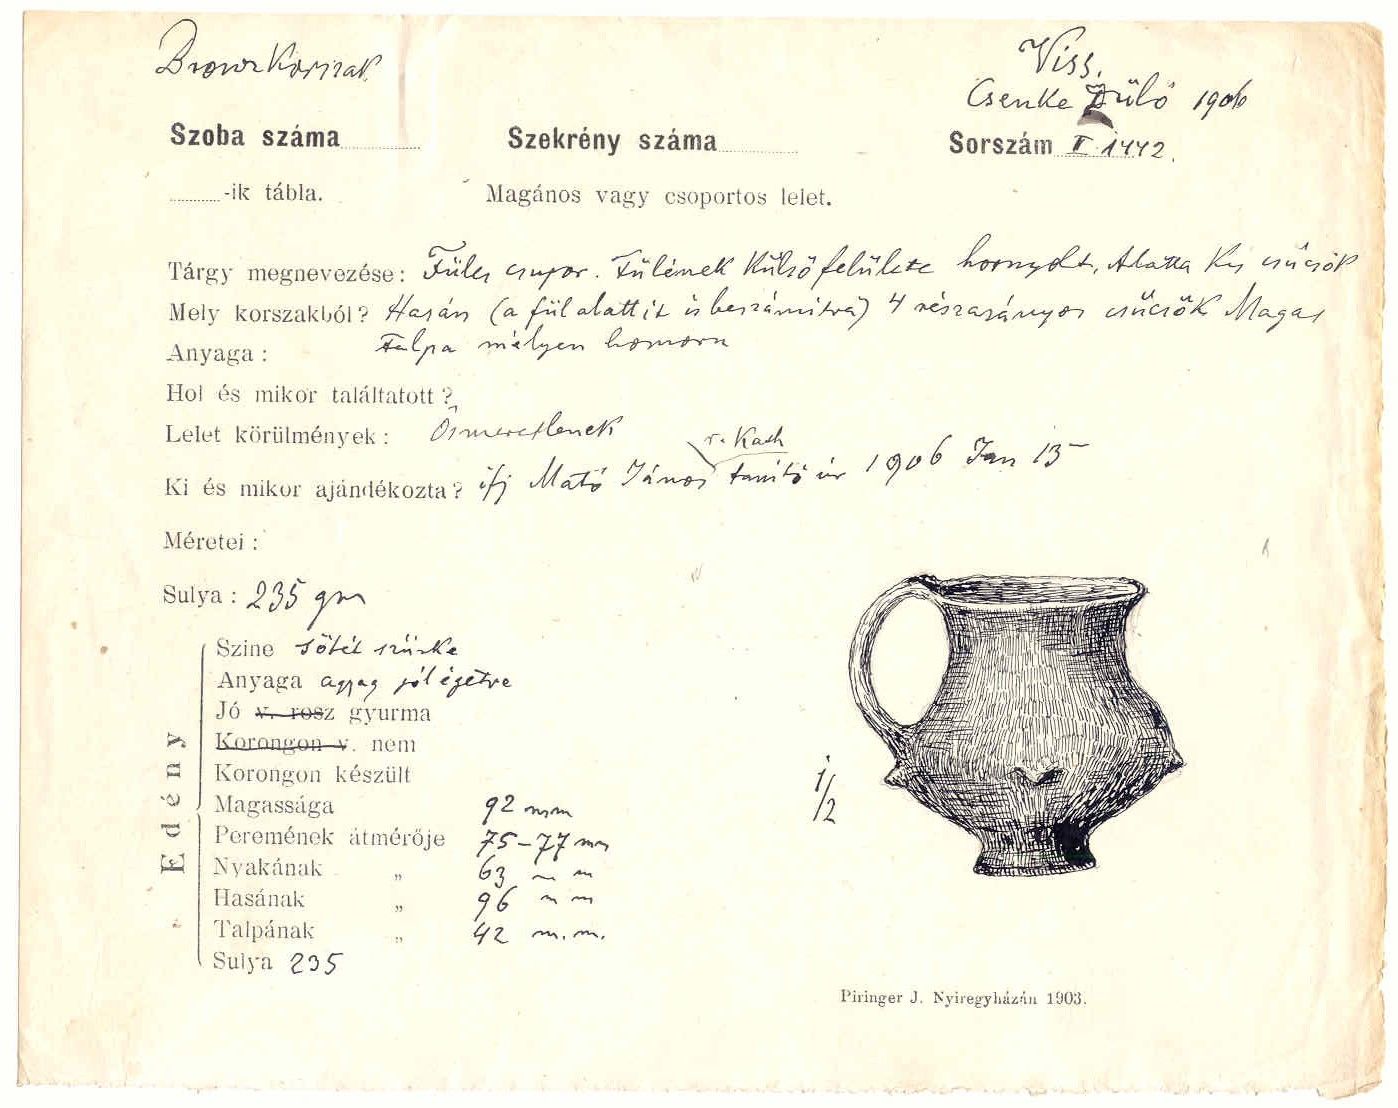 Bronz Korszak
Viss.
Csenke Dülő 1906
Szoba száma
Szekrény száma
Sorszám II 1442.
-ik tábla.
Magános vagy csoportos lelet.
Tárgy megnevezése: Füles csupor. Fülének külső felülete hornyolt, Alatta kis csúcsök
Mely korszakból? Hasán (a fül alattit is beszámitva) 4 részarányos csúcsök Magas
Anyaga: talpa mélyen homoru
Hol és mikor találtatott?
Lelet körülmények: Ösmeretlenek
r. Kath
Ki és mikor ajándékozta? ifj Mató János tanitó úr 1906 Jan 15
Méretei:
Sulya: 235 gm
Edény
Szine sötét szürke
Anyaga agyag jól égetve
Jó v. rosz gyurma
Korongon v. nem
Korongon készült
Magassága 92 mm
Peremének átmérője 75-77 mm
Nyakának „ 63 mm
Hasának „ 96 mm
Talpának „ 42 m.m.
Sulya 235
1/2
Piringer J. Nyiregyházán 1903.